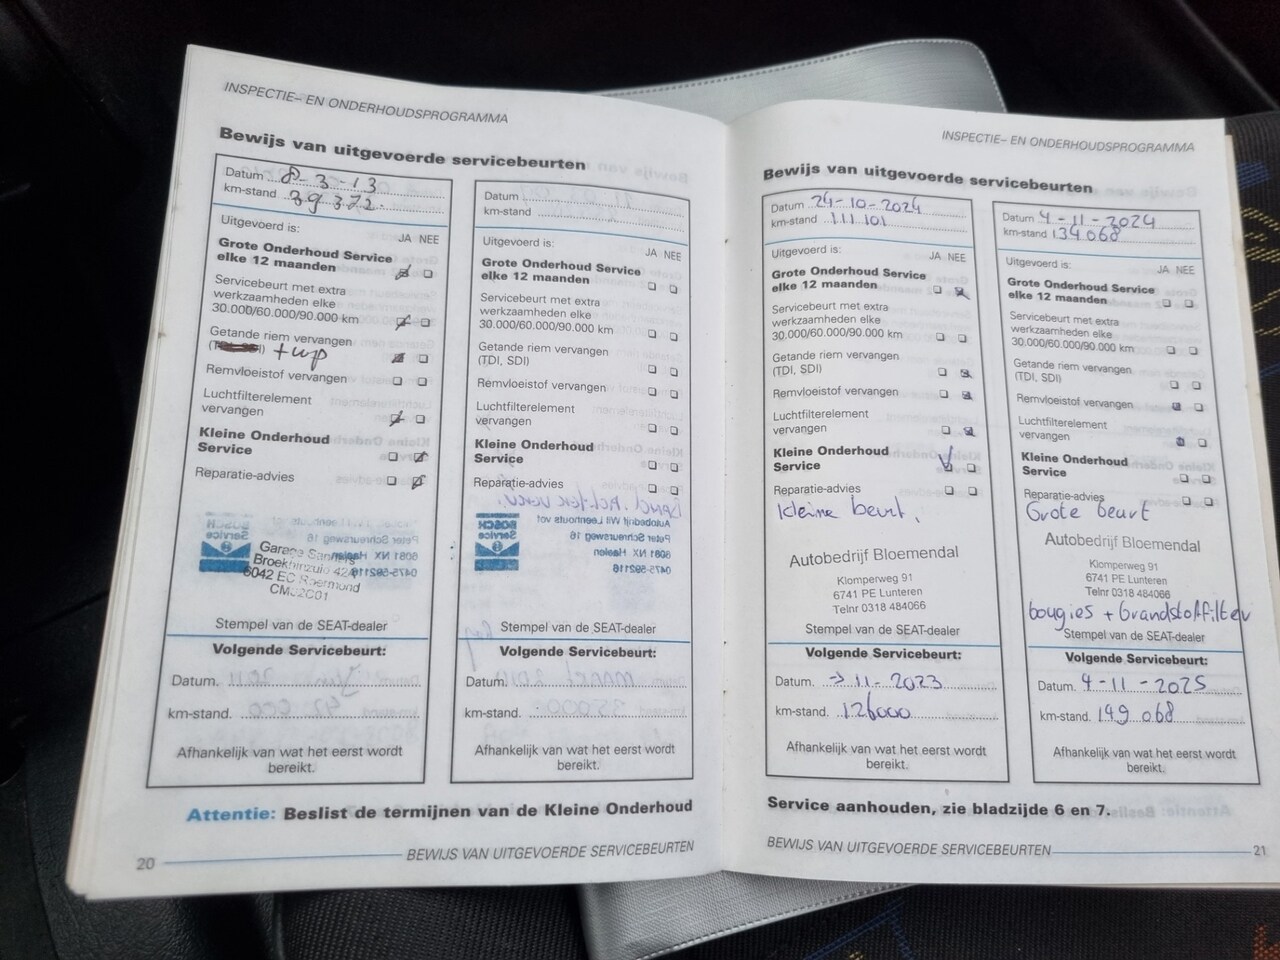 INSPECTIE– EN ONDERHOUDSPROGRAMMA
Bewijs van uitgevoerde servicebeurten
Datum 8-3-13
km-stand 39372
Uitgevoerd is:
JA NEE
Grote Onderhoud Service
elke 12 maanden
Servicebeurt met extra
werkzaamheden elke
30.000/60.000/90.000 km
Getande riem vervangen
+ wp
Remvloeistof vervangen
Luchtfilterelement
vervangen
Kleine Onderhoud
Service
Reparatie-advies
Garage
6042 EC Roermond
Stempel van de SEAT-dealer
Volgende Servicebeurt:
Datum.
km-stand.
Afhankelijk van wat het eerst wordt
bereikt.
Datum
km-stand
Uitgevoerd is:
JA NEE
Grote Onderhoud Service
elke 12 maanden
Servicebeurt met extra
werkzaamheden elke
30.000/60.000/90.000 km
Getande riem vervangen
(TDI, SDI)
Remvloeistof vervangen
Luchtfilterelement
vervangen
Kleine Onderhoud
Service
Reparatie-advies
Stempel van de SEAT-dealer
Volgende Servicebeurt:
Datum.
km-stand.
Afhankelijk van wat het eerst wordt
bereikt.
Attentie: Beslist de termijnen van de Kleine Onderhoud
20
BEWIJS VAN UITGEVOERDE SERVICEBEURTEN
INSPECTIE– EN ONDERHOUDSPROGRAMMA
Bewijs van uitgevoerde servicebeurten
Datum 24-10-2024
km-stand 111.101
Uitgevoerd is:
JA NEE
Grote Onderhoud Service
elke 12 maanden
Servicebeurt met extra
werkzaamheden elke
30.000/60.000/90.000 km
Getande riem vervangen
(TDI, SDI)
Remvloeistof vervangen
Luchtfilterelement
vervangen
Kleine Onderhoud
Service
Reparatie-advies
kleine beurt.
Autobedrijf Bloemendal
Klomperweg 91
6741 PE Lunteren
Telnr 0318 484066
Stempel van de SEAT-dealer
Volgende Servicebeurt:
Datum. → 11-2023
km-stand. 126000
Afhankelijk van wat het eerst wordt
bereikt.
Datum 4-11-2024
km-stand 134.068
Uitgevoerd is:
JA NEE
Grote Onderhoud Service
elke 12 maanden
Servicebeurt met extra
werkzaamheden elke
30.000/60.000/90.000 km
Getande riem vervangen
(TDI, SDI)
Remvloeistof vervangen
Luchtfilterelement
vervangen
Kleine Onderhoud
Service
Reparatie-advies
Grote beurt
Autobedrijf Bloemendal
Klomperweg 91
6741 PE Lunteren
Telnr 0318 484066
bougies + Brandstoffilter
Stempel van de SEAT-dealer
Volgende Servicebeurt:
Datum. 4-11-2025
km-stand. 149.068
Afhankelijk van wat het eerst wordt
bereikt.
Service aanhouden, zie bladzijde 6 en 7.
BEWIJS VAN UITGEVOERDE SERVICEBEURTEN
21